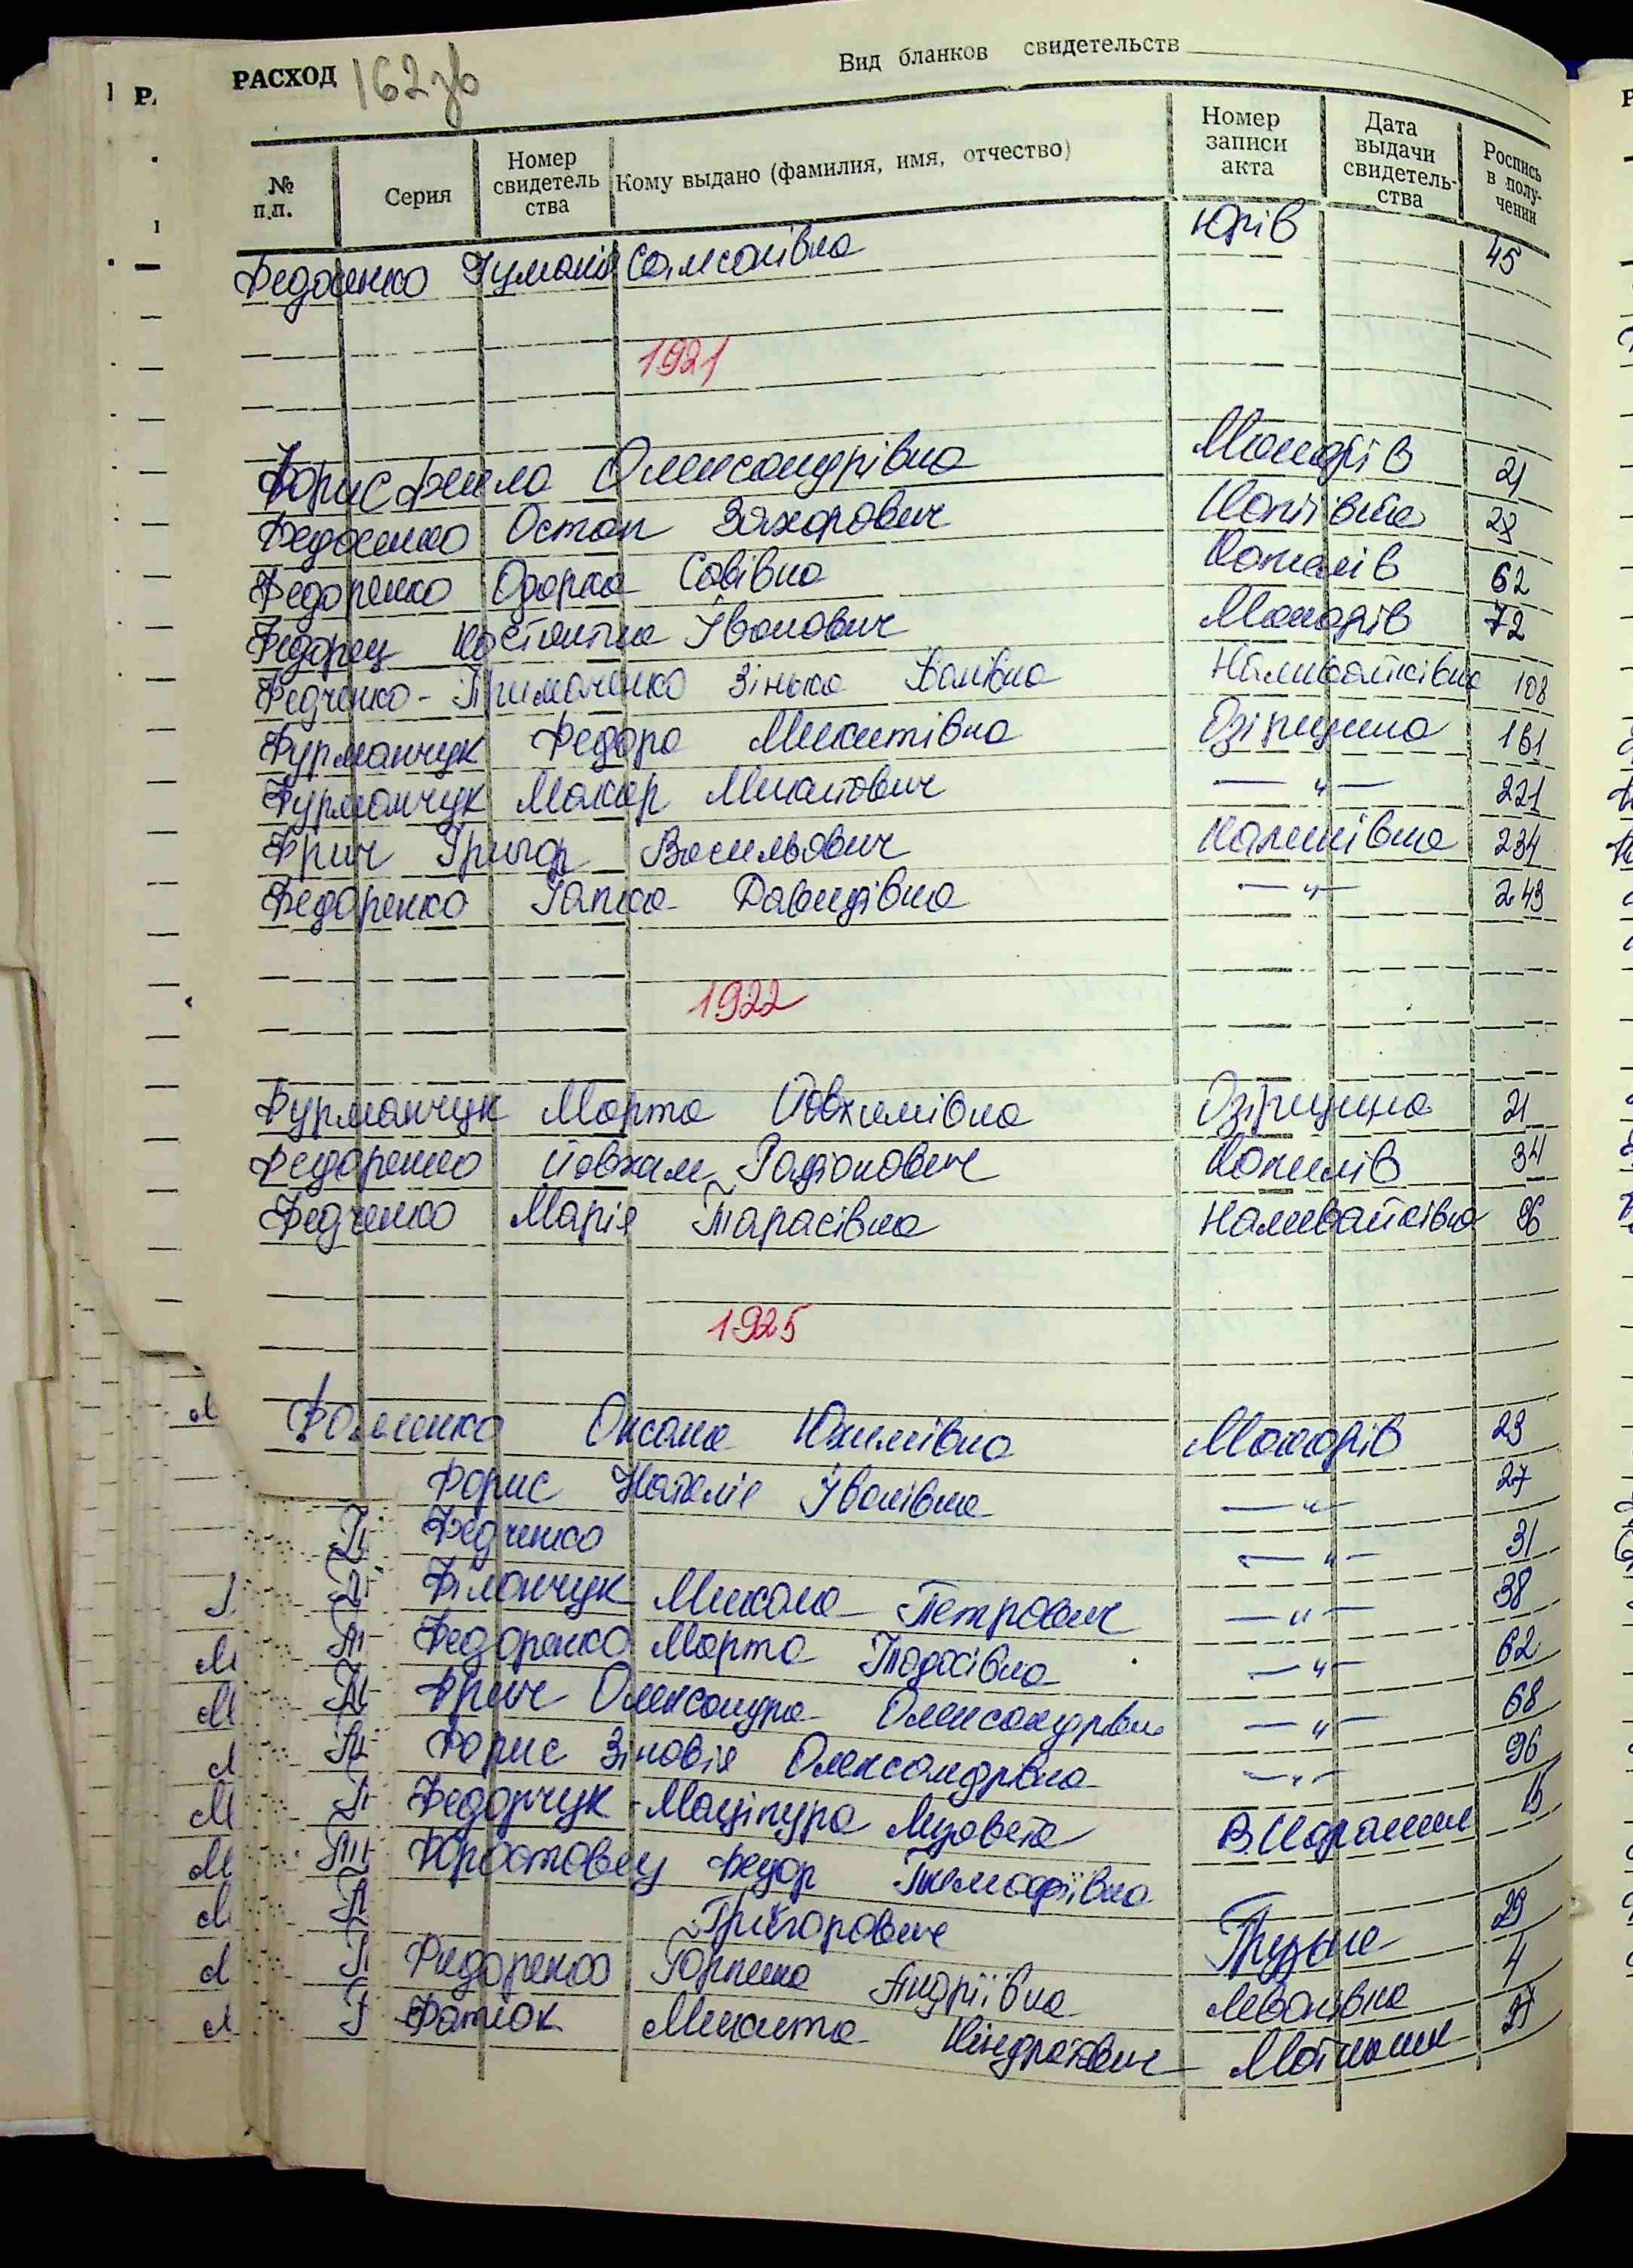 РАСХОД 162зв
Вид бланков свидетельств
№ п.п. Серия Номер свидетель ства Кому выдано (фамилия, имя, отчество) Номер записи акта Дата выдачи свидетель- ства Роспись в полу- чении
Федосенко Уманія Самсонівна Юрів 45
1921
Форис Фекла Олександрівна Макарів 21
Федосенко Остап Захорович Копіївка 28
Федоренко Одарка Савівна Копилів 62
Федорец Костянтин Іванович Макарів 72
Федченко-Примаченко Зінька Іванівна Наливайківка 108
Фурманчук Федора Микитівна Озірщина 161
Фурманчук Макар Микитович — " — 221
Фрич Григор Васильович Калинівка 234
Федоренко Гапка Давидівна — " — 243
1922
Фурманчук Марта Йовхимівна Озірщина 21
Федоренко Йовхим Радіонович Копилів 34
Федченко Марія Тарасівна Наливайківка 96
1925
Фоменко Оксана Юхимівна Макарів 23
Форис Наталія Іванівна — " — 27
Федченко — " — 31
Філончук Микола Петрович — " — 38
Федоренко Марта Тодосівна — " — 62
Фрич Олександра Олександрівн — " — 68
Форис Зіновія Олександрівна — " — 96
Федорчук-Маціпура Лизовета В Карашин 15
Федор Тимофіївна
Григорович Грузьке 29
Федоренко Горпина Андріївна Леванівка 4
Фатюк Микита Кіндратович Мотижин 21